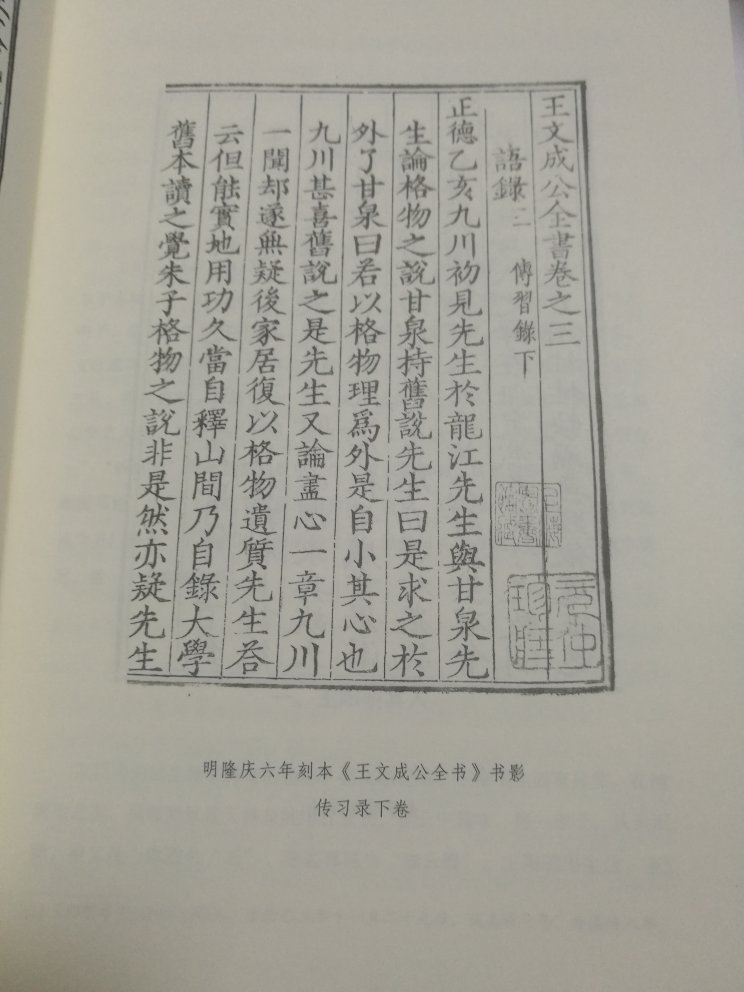 王文成公全書卷之三
語錄三 傳習錄下
正德乙亥九川初見先生於龍江先生與甘泉先
生論格物之說甘泉持舊說先生曰是求之於
外了甘泉曰若以格物理為外是自小其心也
九川甚喜舊說之是先生又論盡心一章九川
一聞却遂無疑後家居復以格物遺質先生荅
云但能實地用功久當自釋山間乃自錄大學
舊本讀之覺朱子格物之說非是然亦疑先生
明隆庆六年刻本《王文成公全书》书影
传习录下卷